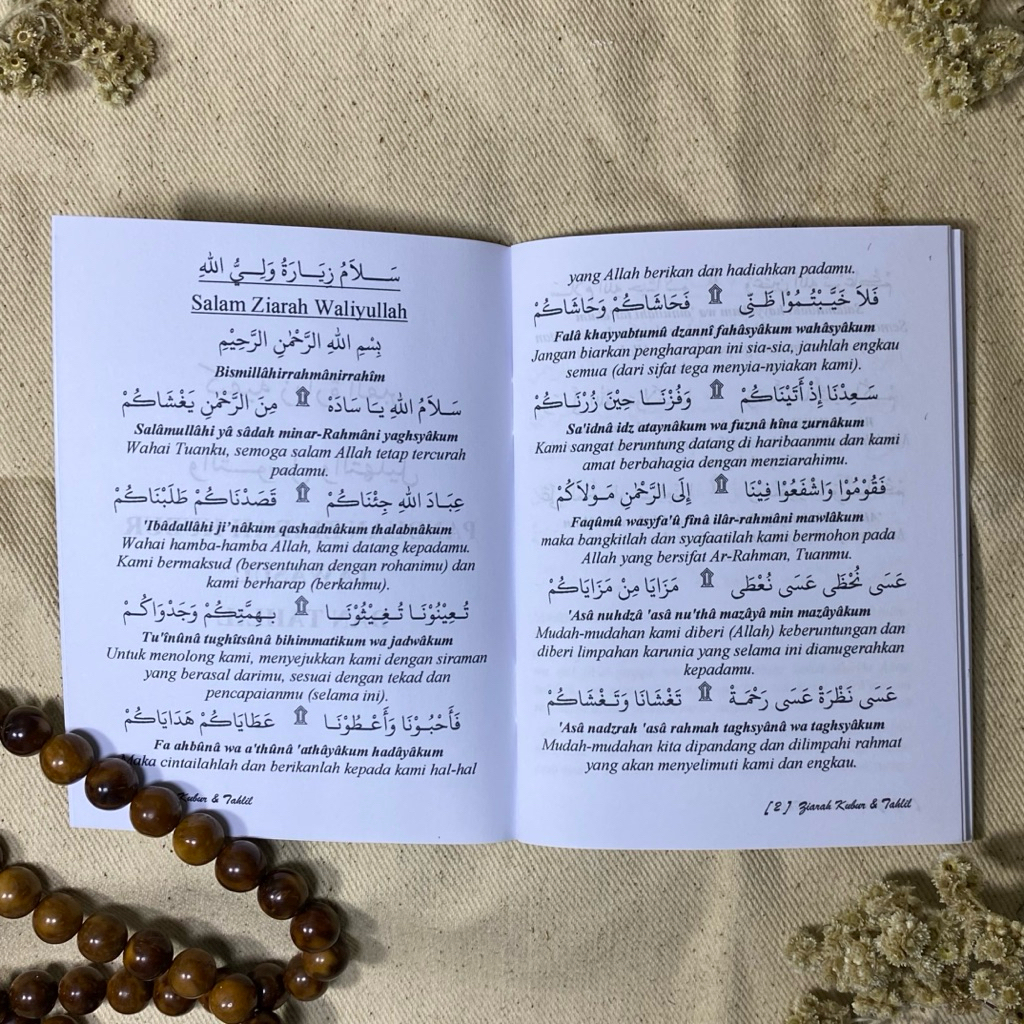 سَــــلاَمُ زِيَـــارَةُ وَلِـــيُّ اللهِ
Salam Ziarah Waliyullah
بِسْمِ اللهِ الرَّحْمٰنِ الرَّحِيْمِ
Bismillâhirrahmânirrahîm
سَـلاَمُ اللهِ يَـا سَادَهْ ۩ مِنَ الرَّحْمٰنِ يَغْشَاكُمْ
Salâmullâhi yâ sâdah minar-Rahmâni yaghsyâkum
Wahai Tuanku, semoga salam Allah tetap tercurah
padamu.
عِبَـادَ اللهِ جِئْنَاكُمْ ۩ قَصَدْنَاكُمْ طَلَبْنَاكُمْ
'Ibâdallâhi ji'nâkum qashadnâkum thalabnâkum
Wahai hamba-hamba Allah, kami datang kepadamu.
Kami bermaksud (bersentuhan dengan rohanimu) dan
kami berharap (berkahmu).
تُـعِيْنُوْنَـا تُـغِيْثُوْنَـــا ۩ بِـهِمَّتِكُمْ وَجَدْوَاكُـمْ
Tu'înûnâ tughîtsûnâ bihimmatikum wa jadwâkum
Untuk menolong kami, menyejukkan kami dengan siraman
yang berasal darimu, sesuai dengan tekad dan
pencapaianmu (selama ini).
فَأَحْبُـوْنَا وَأَعْـطُوْنَـا ۩ عَطَايَاكُمْ هَدَايَاكُمْ
Fa ahbûnâ wa a'thûnâ 'athâyâkum hadâyâkum
Maka cintailahlah dan berikanlah kepada kami hal-hal
Kubur & Tahlil
yang Allah berikan dan hadiahkan padamu.
فَلاَ خَيَّـبْتُـمُوْا ظَـنِّى ۩ فَحَاشَاكُمْ وَحَاشَاكُمْ
Falâ khayyabtumû dzannî fahâsyâkum wahâsyâkum
Jangan biarkan pengharapan ini sia-sia, jauhlah engkau
semua (dari sifat tega menyia-nyiakan kami).
سَـعِدْنَا إِذْ أَتَيْنَاكُمْ ۩ وَفُزْنَـــا حِيْنَ زُرْنَـاكُمْ
Sa'idnâ idz ataynâkum wa fuznâ hîna zurnâkum
Kami sangat beruntung datang di haribaanmu dan kami
amat berbahagia dengan menziarahimu.
فَقُوْمُوْا وَاشْفَعُوْا فِيْنَا ۩ إِلَى الرَّحْمٰنِ مَـوْلاَكُمْ
Faqûmû wasyfa'û fînâ ilâr-rahmâni mawlâkum
maka bangkitlah dan syafaatilah kami bermohon pada
Allah yang bersifat Ar-Rahman, Tuanmu.
عَسَى نُحْظَى عَسَى نُعْطَى ۩ مَزَايَا مِنْ مَزَايَاكُمْ
'Asâ nuhdzâ 'asâ nu'thâ mazâyâ min mazâyâkum
Mudah-mudahan kami diberi (Allah) keberuntungan dan
diberi limpahan karunia yang selama ini dianugerahkan
kepadamu.
عَسَى نَظْرَةْ عَسَى رَحْمَـةْ ۩ تَغْشَانَا وَتَـغْشَاكُمْ
'Asâ nadzrah 'asâ rahmah taghsyânâ wa taghsyâkum
Mudah-mudahan kita dipandang dan dilimpahi rahmat
yang akan menyelimuti kami dan engkau.
[ 2 ] Ziarah Kubur & Tahlil